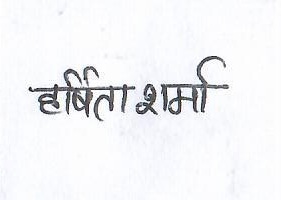 हर्षिता शर्मा